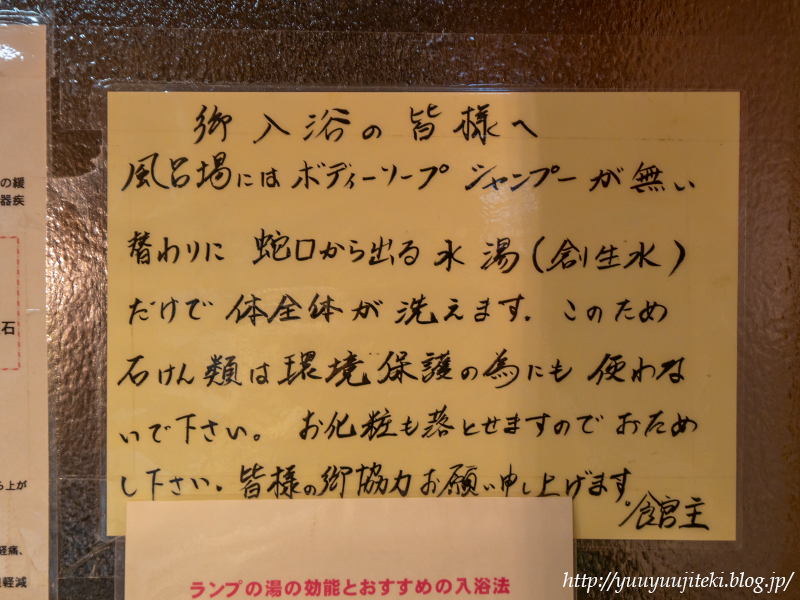 御入浴の皆様へ
風呂場にはボディーソープ シャンプーが無い
替わりに 蛇口から出る水 湯(創生水)
だけで 体全体が 洗えます. このため
石けん類は環境保護の為にも 使わな
いで下さい。 お化粧も落とせますので おため
し下さい. 皆様の御協力お願い申し上げます.
館主
ランプの湯の効能とおすすめの入浴法
の緩
器疾
石
ら上が
経痛、
軽減
http://yuuyuujiteki.blog.jp/